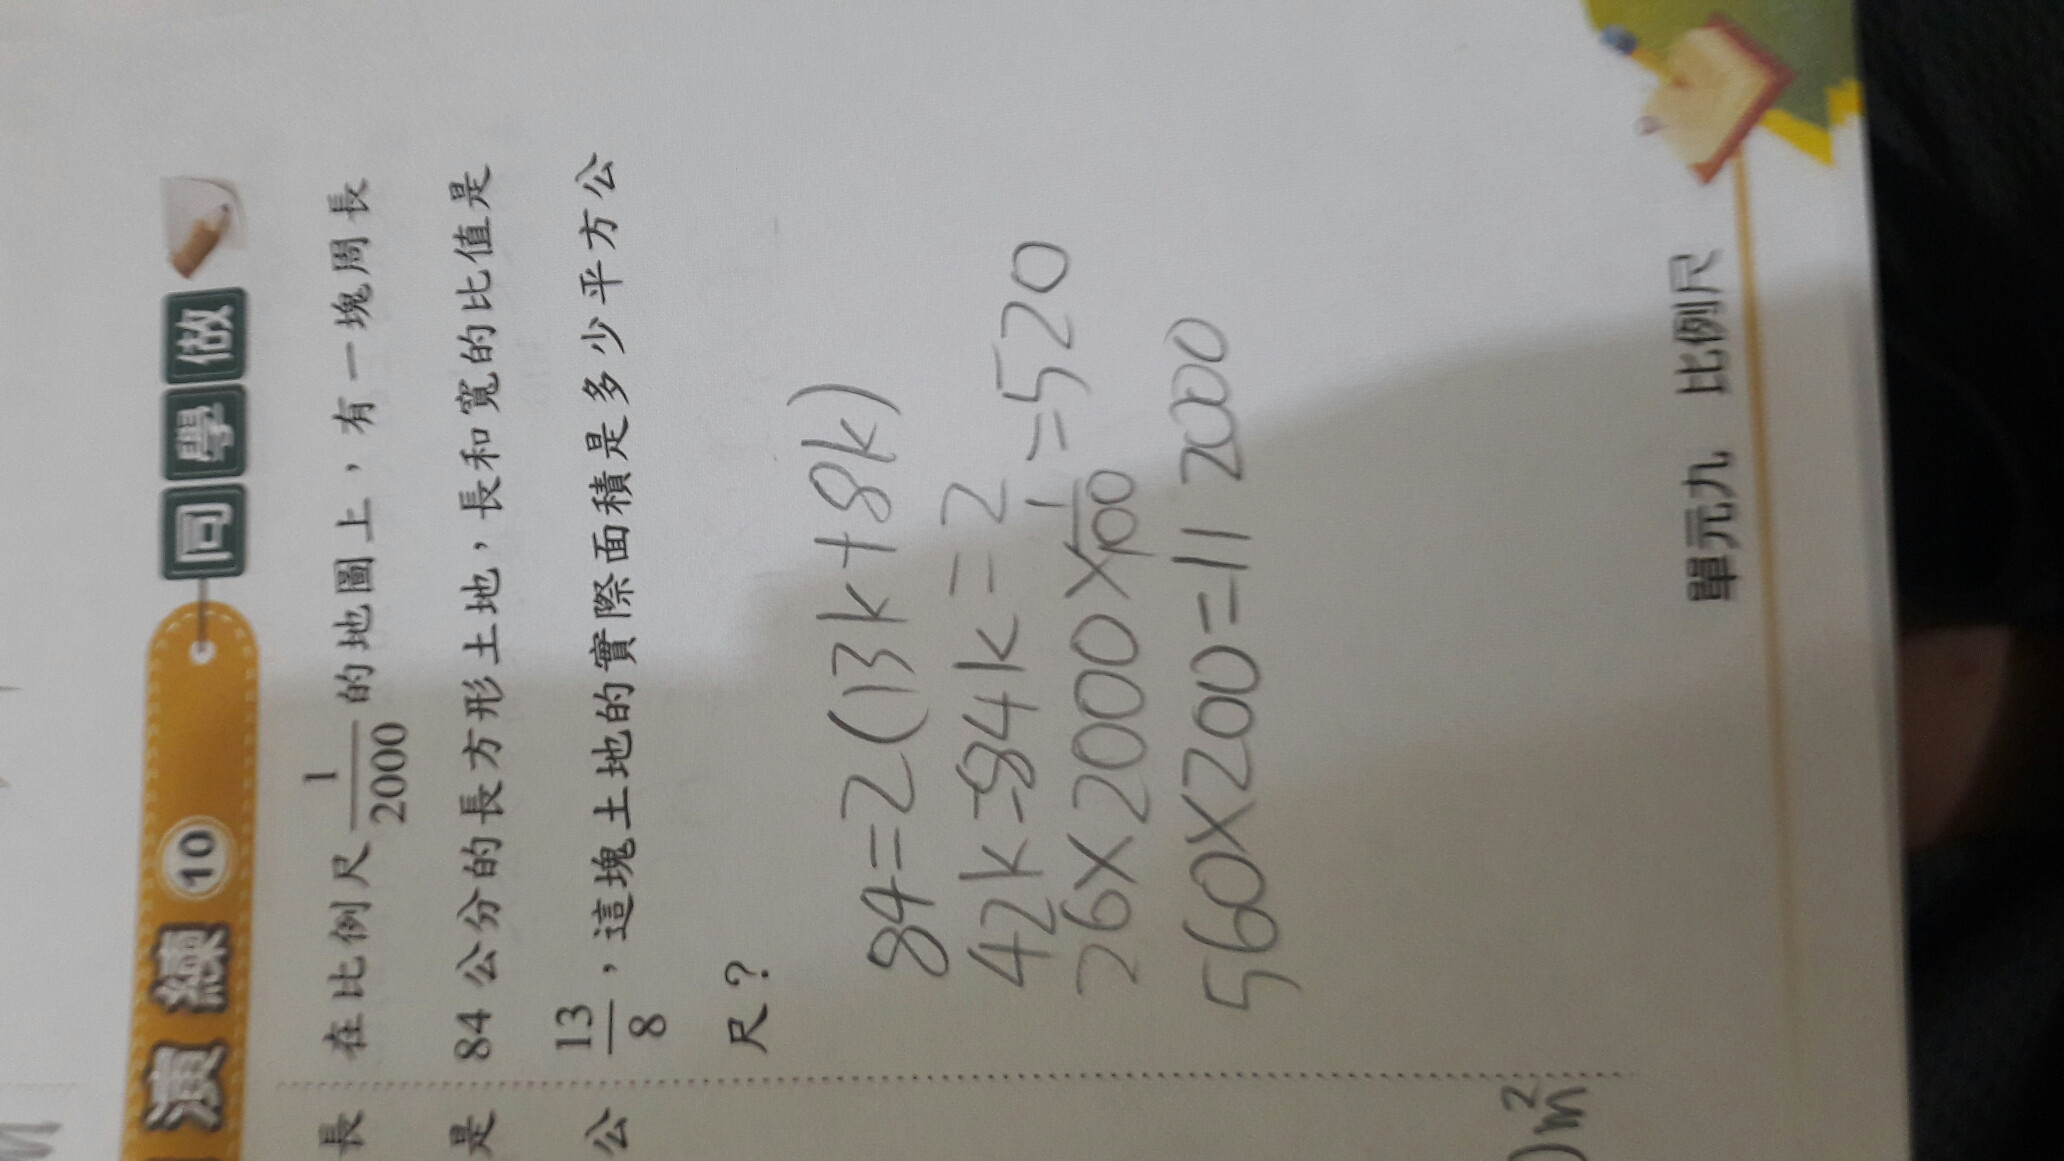 演練 10 同學做
長 在比例尺 1/2000 的地圖上，有一塊周長
是 84 公分的長方形土地，長和寬的比值是
公 13/8，這塊土地的實際面積是多少平方公
尺？
84=2(13k+8k)
42k=84k=2
26×2000×1/100=520
560×200=112000
)m²
單元九 比例尺